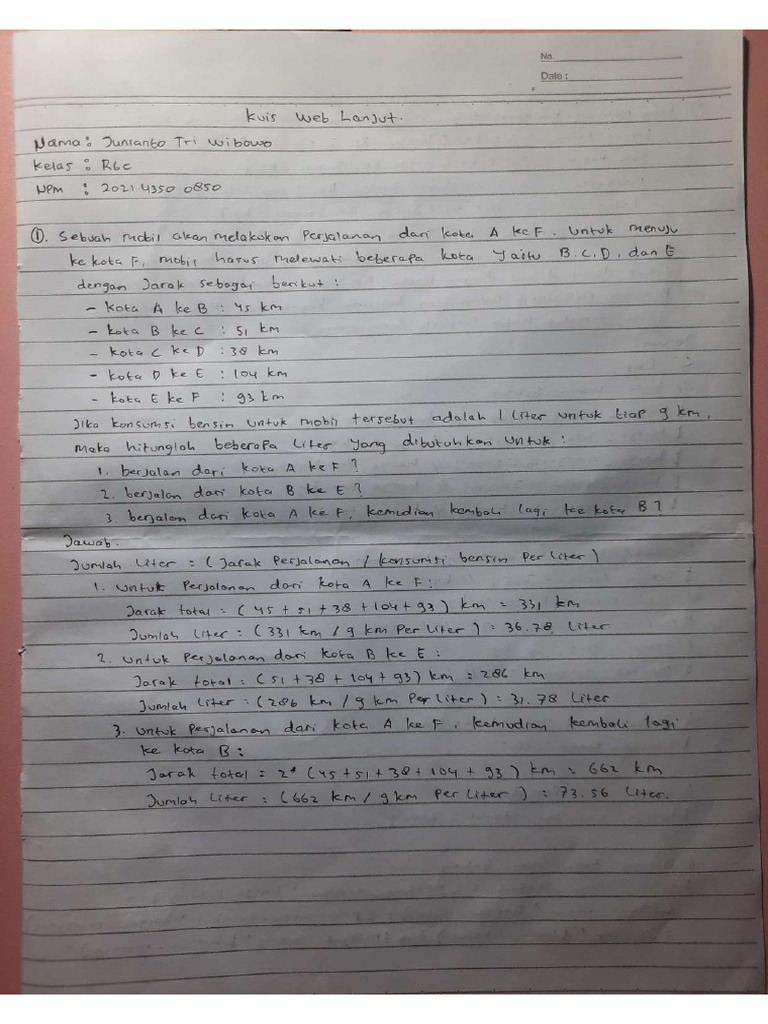 No.
Date :
Kuis Web Lanjut.
Nama : Junianto Tri Wibowo
Kelas : R6C
NPM : 2021 4350 0850
①. Sebuah mobil akan melakukan Perjalanan dari kota A ke F. Untuk menuju
ke kota F, mobil harus melewati beberapa kota yaitu B, C, D, dan E
dengan Jarak sebagai berikut :
- Kota A ke B : 45 km
- kota B ke C : 51 km
- kota C ke D : 38 km
- kota D ke E : 104 km
- kota E ke F : 93 km
Jika konsumsi bensin untuk mobil tersebut adalah 1 liter untuk tiap 9 km,
maka hitunglah beberapa liter yang dibutuhkan untuk :
1. berjalan dari kota A ke F ?
2. berjalan dari kota B ke E ?
3. berjalan dari kota A ke F, kemudian kembali lagi ke kota B ?
Jawab.
Jumlah liter : (Jarak Perjalanan / konsumsi bensin Per liter)
1. Untuk Perjalanan dari kota A ke F :
Jarak total = (45 + 51 + 38 + 104 + 93) km = 331 km
Jumlah liter : (331 km / 9 km Per liter) = 36.78 liter
2. Untuk Perjalanan dari kota B ke E :
Jarak total = (51 + 38 + 104 + 93) km = 286 km
Jumlah liter : (286 km / 9 km Per liter) = 31.78 liter
3. Untuk Perjalanan dari kota A ke F, kemudian kembali lagi
ke kota B :
Jarak total = 2* (45 + 51 + 38 + 104 + 93) km = 662 km
Jumlah liter : (662 km / 9 km Per liter) = 73.56 liter.